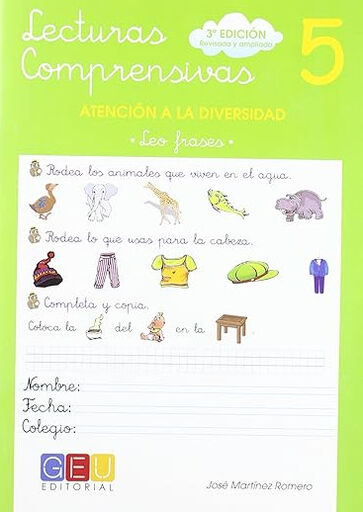 Lecturas
Comprensivas
3ª EDICIÓN
Revisada y ampliada
5
ATENCIÓN A LA DIVERSIDAD
• Leo frases •
Rodea los animales que viven en el agua.
Rodea lo que usas para la cabeza.
Completa y copia.
Coloca la del en la
Nombre:
Fecha:
Colegio:
GEU
EDITORIAL
José Martínez Romero